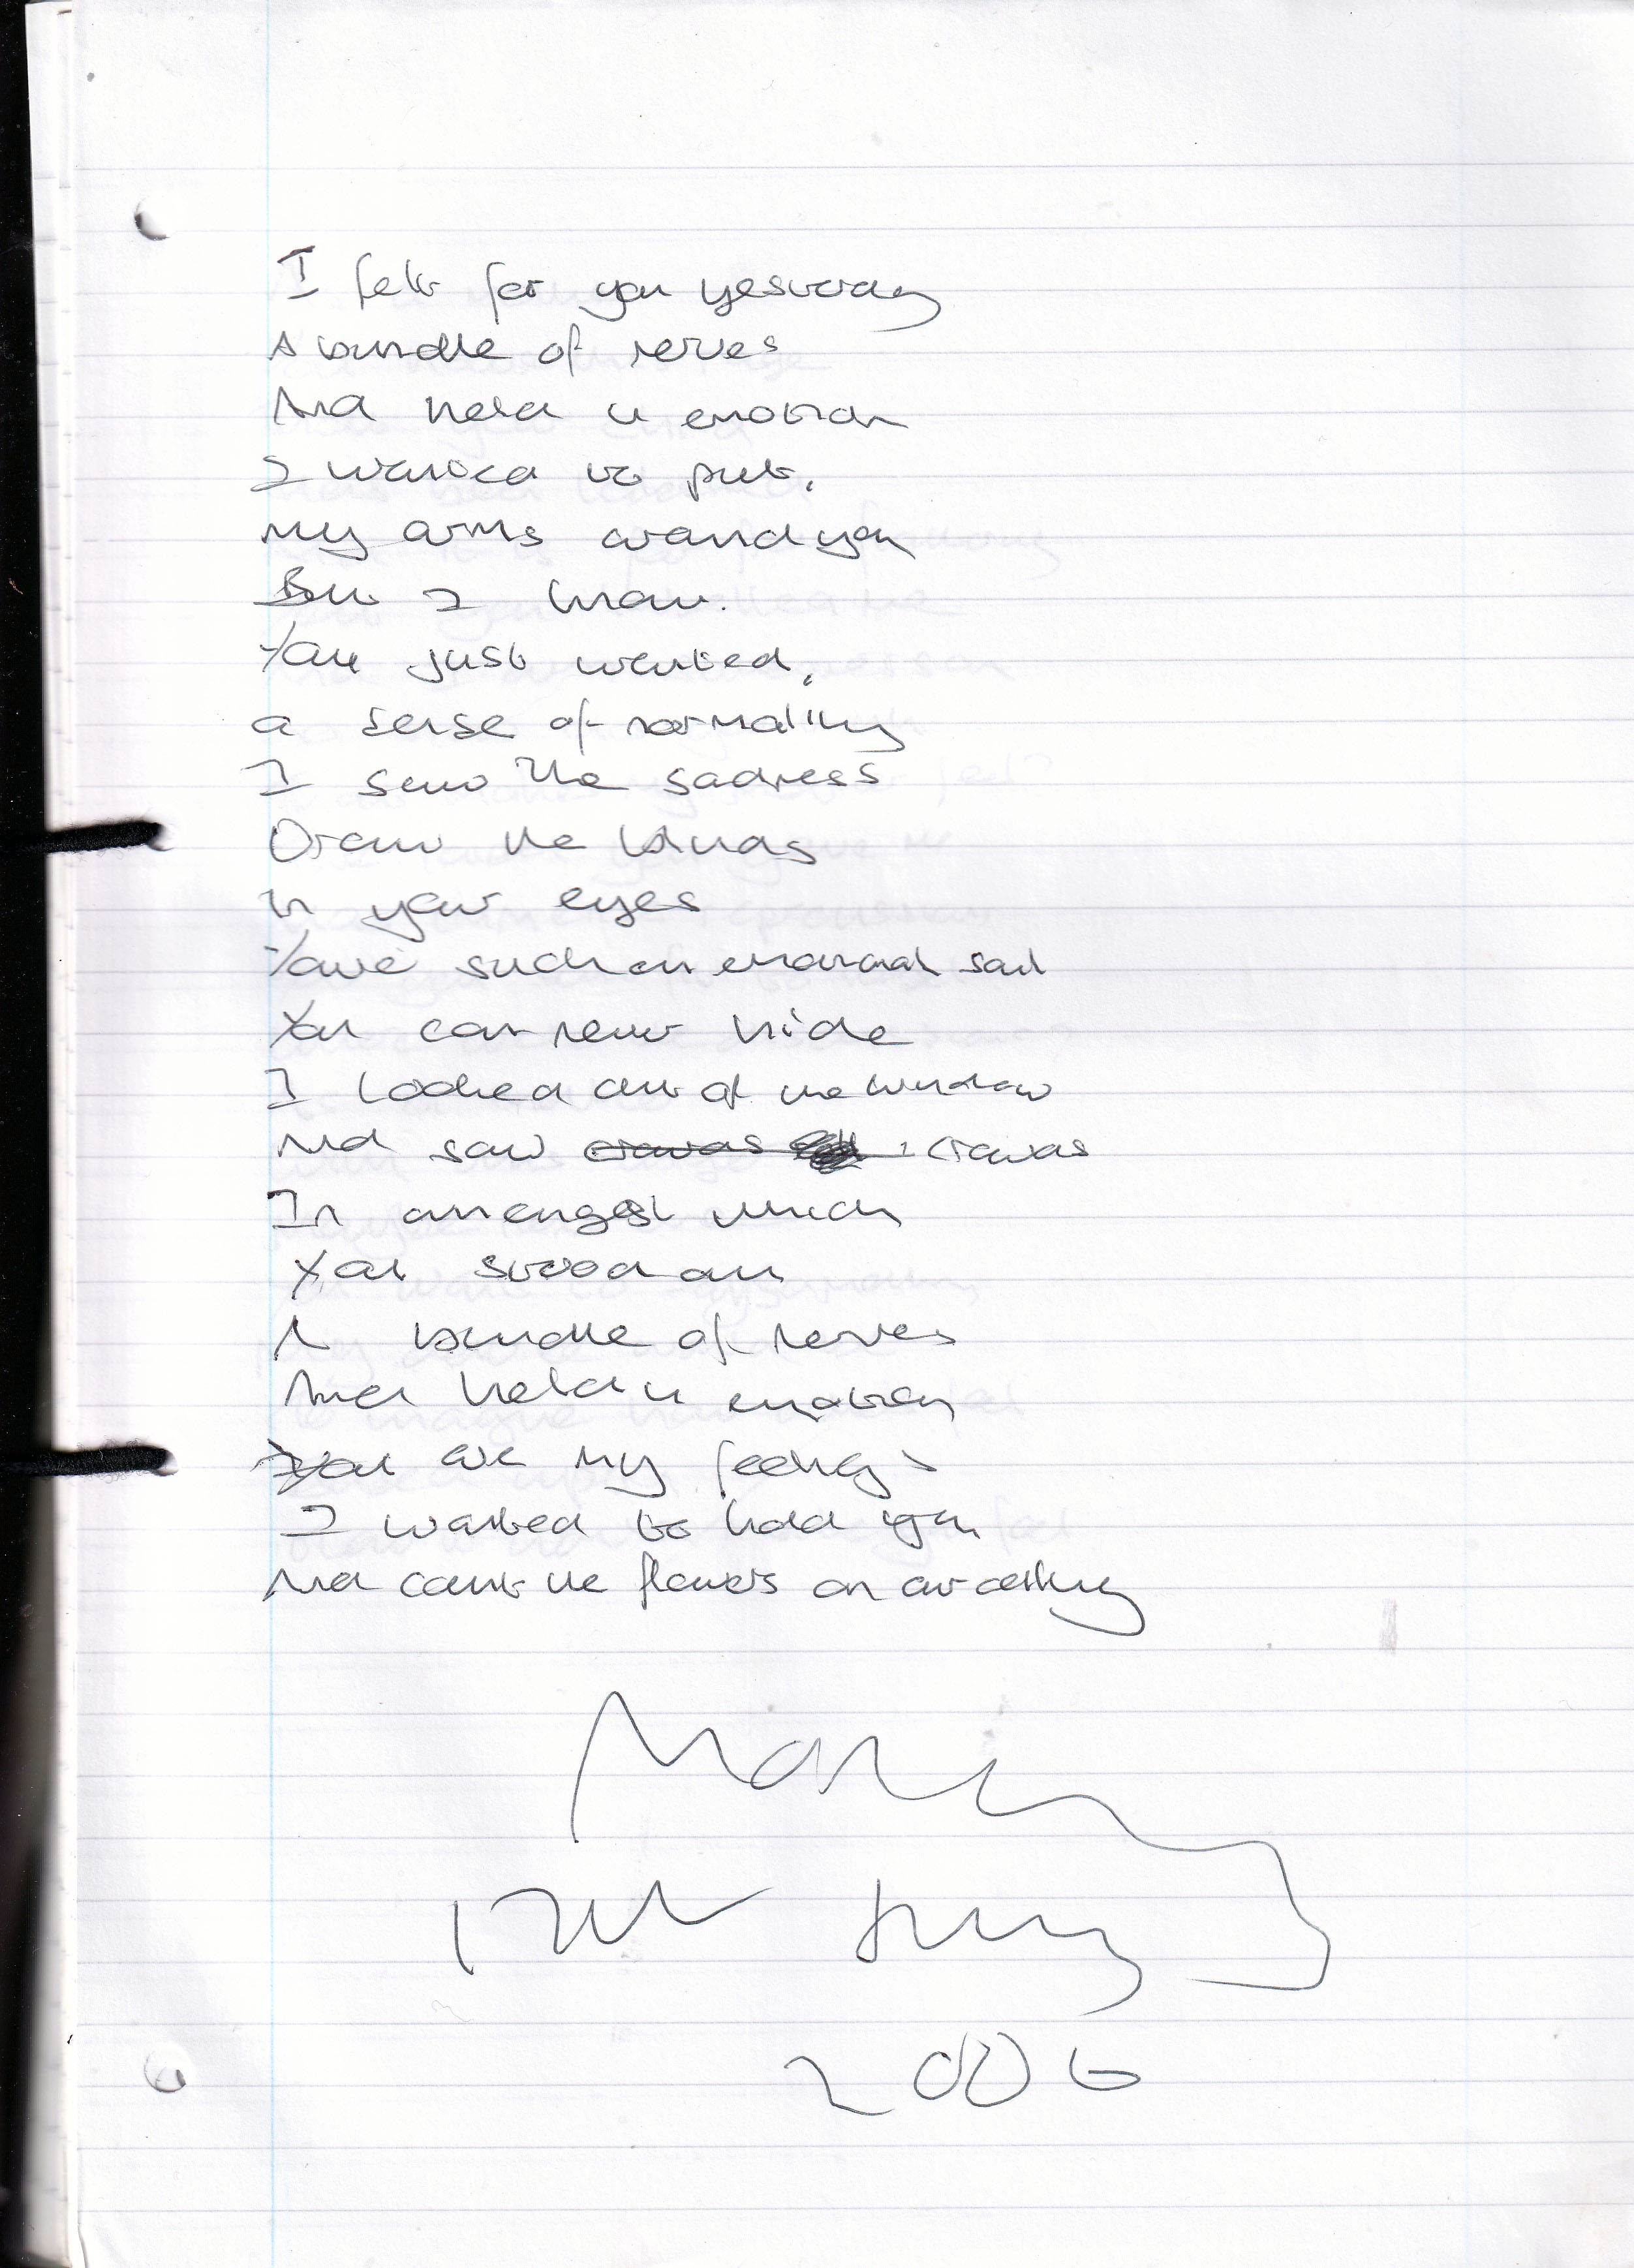 I felt for you yesterday
A bundle of nerves
And held in emotion
I wanted to put,
my arms around you
But I know.
You just wanted,
a sense of normality
I saw the sadness
Draw the blinds
In your eyes
You've such an emotional soul
You can never hide
I looked out of the window
And saw crowds crowds
In amongst which
You stood out
A bundle of nerves
And held in emotion
You are my feelings
I wanted to hold you
And count the flowers on our ceiling
2006